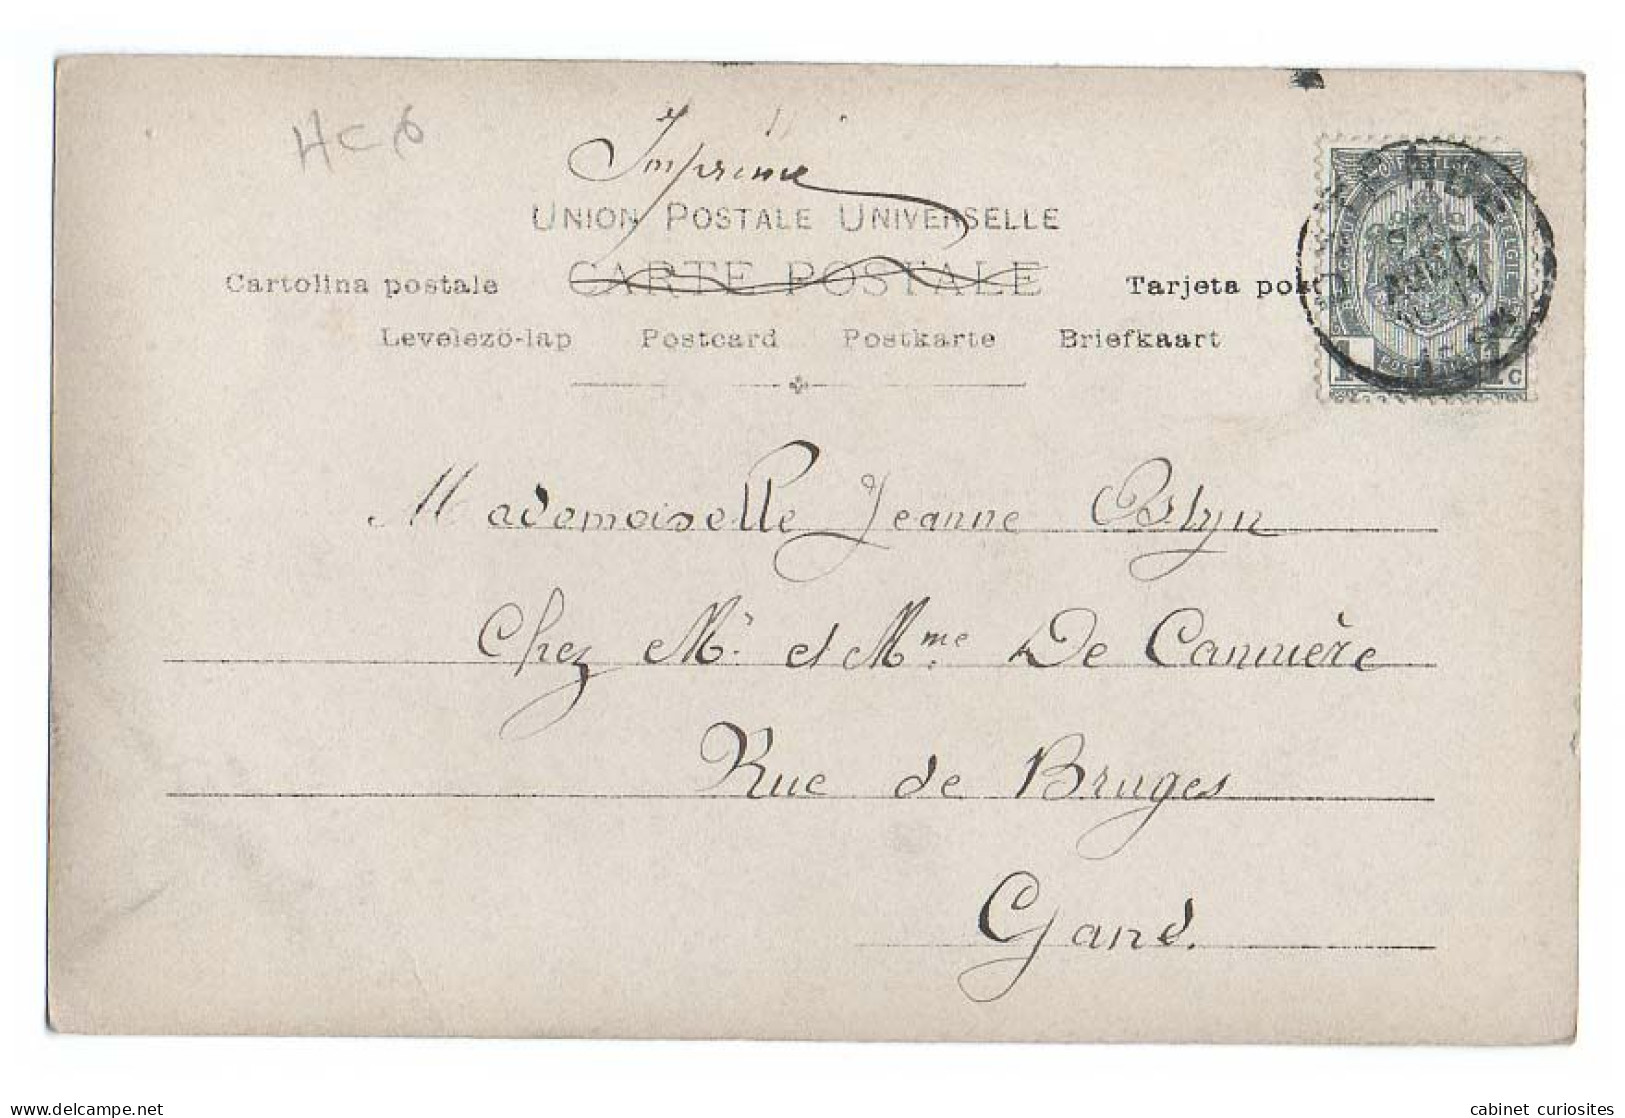 HC6
Imprimé
UNION POSTALE UNIVERSELLE
CARTE POSTALE
Cartolina postale Tarjeta post
Levelező-lap Postcard Postkarte Briefkaart
Mademoiselle Jeanne Ostyn
Chez Mr. et Mme. De Cannière
Rue de Bruges
Gand.
www.delcampe.net cabinet_curiosites